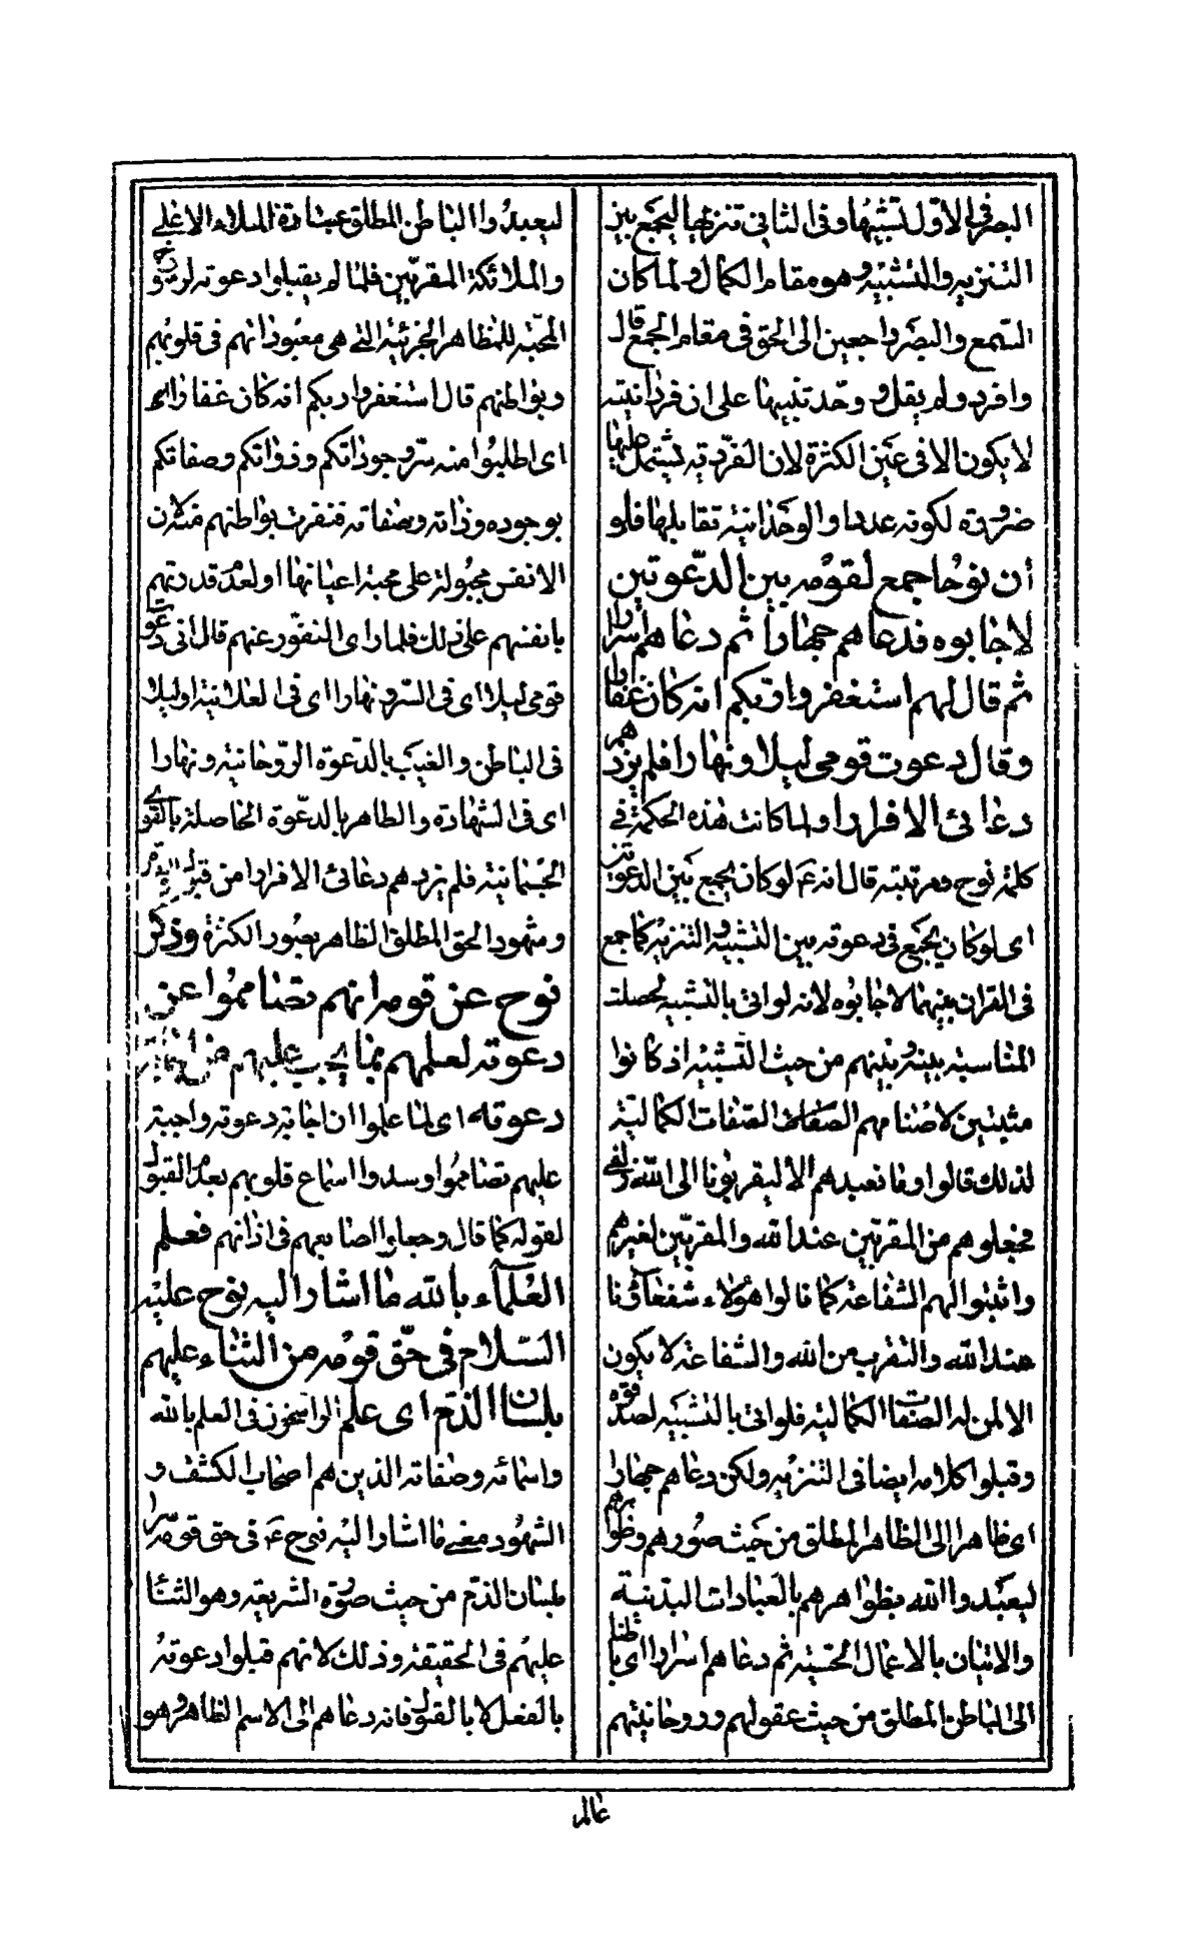 البصر فى الاول تشبيها وفى الثانى تنزيها ليجمع بين
التنزيه والتشبيه وهو مقام الكمال ولما كان
السمع والبصر راجعين الى الحق فى مقام الجمع قال
وافرد ولم يقل وحد تنبيها على ان فردانيته
لا يكون الا فى عين الكثرة لان الفردية يشتمل عليها
ضرورة لكونه عددا والوحدانية تقابلها فلو
أن نوحا جمع لقومه بين الدعوتين
لاجابوه فدعاهم جهارا ثم دعاهم اسرارا
ثم قال لهم استغفروا ربكم انه كان غفارا
وقال دعوت قومى ليلا ونهارا فلم يزدهم
دعائى الا فرارا ولما كانت هذه الحكمة فى
كلمة نوح ومرتبته قال انه ع لو كان يجمع بين الدعوتين
اى لو كان يجمع فى دعوته بين التشبيه والتنزيه كما جمع
فى القران بينهما لاجابوه لانه لو اتى بالتشبيه لحصلت
المناسبة بينه وبينهم من حيث التشبيه اذ كانوا
مثبتين لاصنامهم الصفات الكمالية
لذلك قالوا وما نعبدهم الا ليقربونا الى الله زلفى
فجعلوهم من المقربين عند الله والمقربين لغيرهم
واثبتوا لهم الشفاعة كما قالوا هؤلاء شفعاؤنا
عند الله والتقرب من الله والشفاعة لا يكون
الا لمن له الصفات الكمالية فلو اتى بالتشبيه لصدقوه
وقبلوا كلامه ايضا فى التنزيه ولكن دعاهم جهارا
اى ظاهرا الى الظاهر المطلق من حيث صورهم وظواهرهم
ليعبدوا الله بظواهرهم بالعبادات البدنية
والاتيان بالاعمال الحسنة ثم دعاهم اسرارا اى باطنا
الى الباطن المطلق من حيث عقولهم وروحانيتهم
ليعبدوا الباطن المطلق عبادة الملاء الاعلى
والملائكة المقربين فلما لم يقبلوا دعوته لرسوخ
المحبة للمظاهر الجزئية التى هى معبوداتهم فى قلوبهم
وبواطنهم قال استغفروا ربكم انه كان غفارا
اى اطلبوا منه ستر وجوداتكم وذواتكم وصفاتكم
بوجوده وذاته وصفاته فنفرت بواطنهم منه لان
الانفس مجبولة على محبة اعيانها او لعدم قدرتهم
بانفسهم على ذلك فلما راى النفور عنهم قال انى دعوت
قومى ليلا اى فى السر ونهارا اى فى العلانية او ليلا
فى الباطن والغيب بالدعوة الروحانية ونهارا
اى فى الشهادة والظاهر بالدعوة الحاصلة بالقوى
الجسمانية فلم يزدهم دعائى الا فرارا من قبول
وشهود الحق المطلق الظاهر بصور الكثرة وذكر
نوح عن قومه انهم تصامموا عن
دعوته لعلمهم بما يجب عليهم من اجابة
دعوته اى لما علموا ان اجابة دعوته واجبة
عليهم تصامموا وسدوا اسماع قلوبهم بعدم القبول
لقوله كما قال وجعلوا اصابعهم فى اذانهم فعلم
العلمآء بالله ما اشار اليه نوح عليه
السلام فى حق قومه من الثناء عليهم
بلسان الذم اى علم الراسخون فى العلم بالله
واسمائه وصفاته الذين هم اصحاب الكشف و
الشهود معنى ما اشار اليه نوح ع فى حق قومه
بلسان الذم من حيث صورة الشريعة وهو الثناء
عليهم فى الحقيقة وذلك لانهم قبلوا دعوته
بالفعل لا بالقول فانه دعاهم الى الاسم الظاهر وهو
عالم